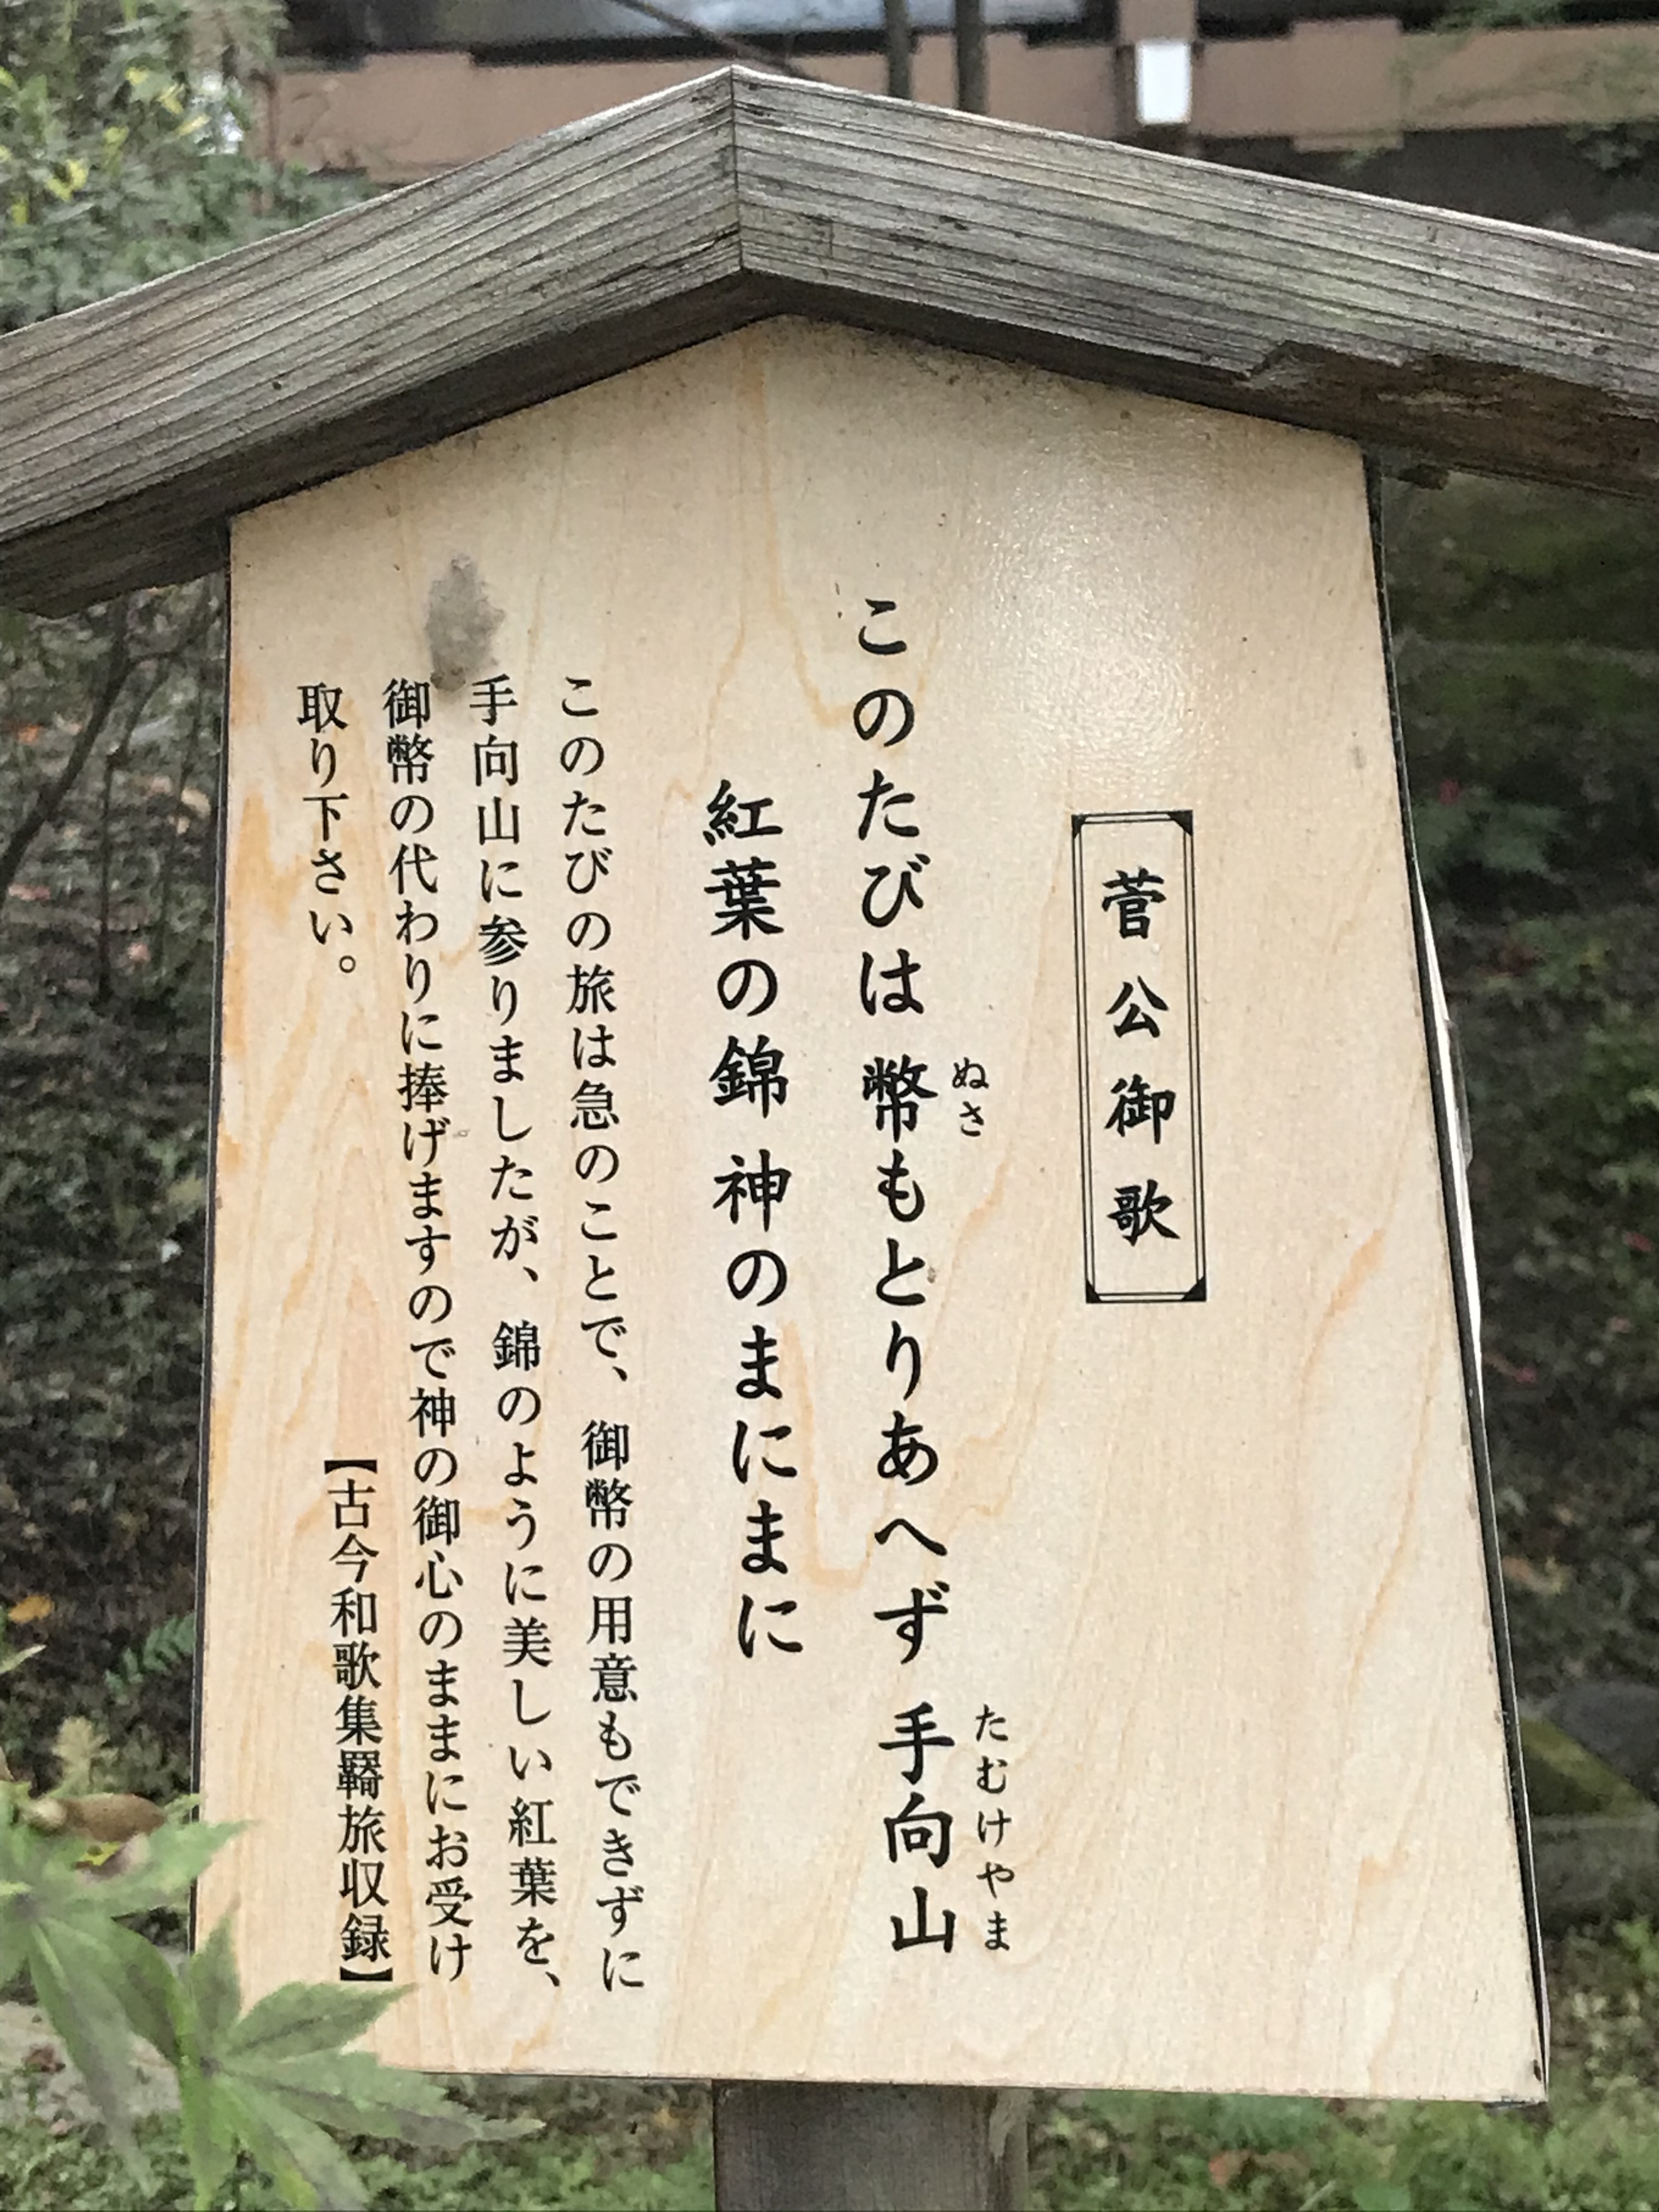 菅公御歌
このたびは 幣もとりあへず 手向山
ぬさ
たむけやま
紅葉の錦 神のまにまに
このたびの旅は急のことで、御幣の用意もできずに
手向山に参りましたが、錦のように美しい紅葉を、
御幣の代わりに捧げますので神の御心のままにお受け
取り下さい。
【古今和歌集羇旅収録】